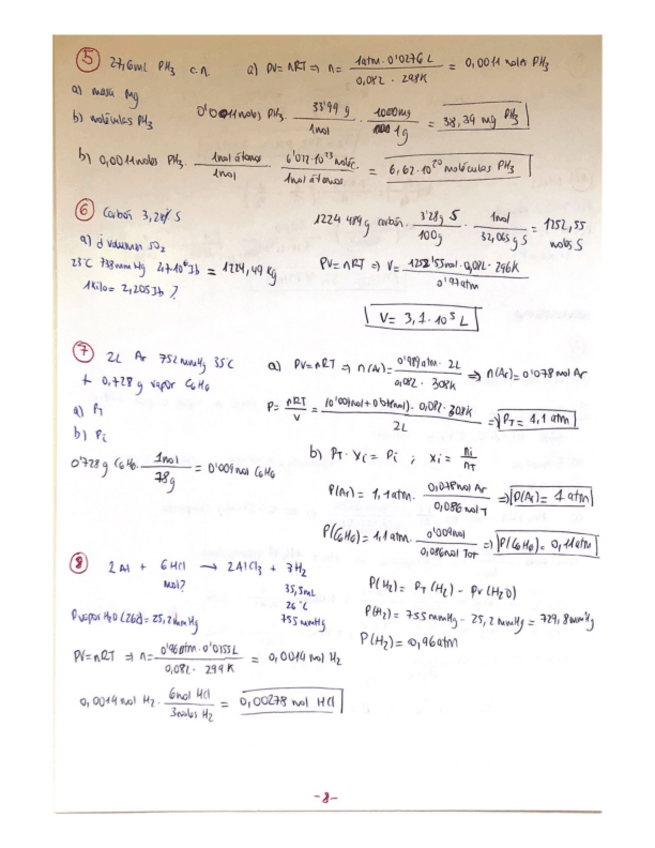 5 27,6ml PH3 c.n. a) PV=nRT ⇒ n= 1atm·0'0276 L / 0,082 · 298K = 0,0011 moles PH3
a) masa mg
b) moléculas PH3
0'0011moles PH3 · 33'99 g / 1mol · 1000mg / 1g = 38,39 mg PH3
b) 0,0011moles PH3 · 1mol átomos / 1mol · 6'022·10^23 molec. / 1mol átomos = 6,62·10^20 moléculas PH3
6 Carbón 3,28% S
1224 489g carbón · 3'28g S / 100g · 1mol / 32,065 g S = 1252,55 moles S
a) ¿volumen SO2
23°C 738mmHg 2'7·10^6 lb = 1224,49 kg
1kilo = 2,205 lb ?
PV=nRT ⇒ V= 1252'55mol·0,082·296K / 0'97atm
V= 3,1·10^5 L
7 2L Ar 752mmHg 35°C
+ 0,728 g vapor C6H6
a) PT
b) Pi
0'728g C6H6 · 1mol / 78g = 0'009mol C6H6
a) PV=nRT ⇒ n(Ar)= 0'989atm · 2L / 0,082 · 308K ⇒ n(Ar)=0'078mol Ar
P= nRT / V = (0'009mol+0'078mol)·0,082·308K / 2L ⇒ PT= 1,1 atm
b) PT · Xi = Pi ; Xi = ni / nT
P(Ar)= 1,1atm · 0,078mol Ar / 0,086 mol T ⇒ P(Ar)= 1 atm
P(C6H6)=1,1atm · 0'009mol / 0,086mol Tot ⇒ P(C6H6)= 0,11atm
8 2Al + 6HCl → 2AlCl3 + 3H2
mol?
35,5mL
26°C
755mmHg
Pvapor H2O (26º)=25,2mmHg
P(H2)= PT(H2) - Pv(H2O)
P(H2)= 755mmHg - 25,2 mmHg = 729,8mmHg
P(H2)= 0,96atm
PV=nRT ⇒ n= 0'96atm·0'0355L / 0,082 · 299K = 0,0014 mol H2
0,0014mol H2 · 6mol HCl / 3moles H2 = 0,00278 mol HCl
-8-